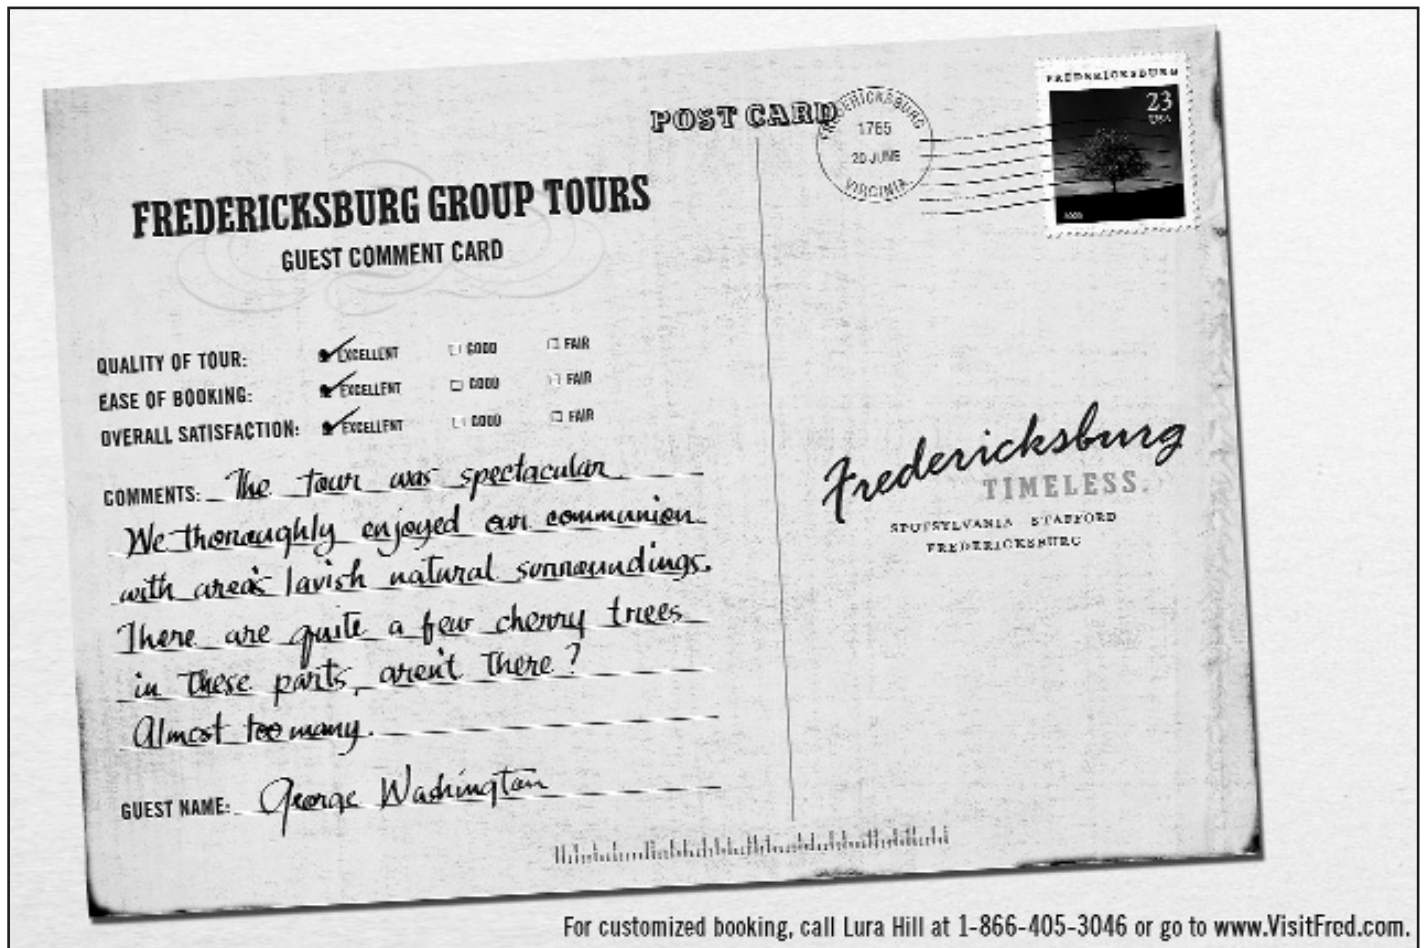 POST CARD
FREDERICKSBURG
1765
20 JUNE
VIRGINIA
FREDERICKSBURG
23
USA
FREDERICKSBURG GROUP TOURS
GUEST COMMENT CARD
QUALITY OF TOUR: EXCELLENT GOOD FAIR
EASE OF BOOKING: EXCELLENT GOOD FAIR
OVERALL SATISFACTION: EXCELLENT GOOD FAIR
COMMENTS: The tour was spectacular
We thoroughly enjoyed our communion
with area's lavish natural surroundings.
There are quite a few cherry trees
in these parts, aren't there?
Almost too many.
GUEST NAME: George Washington
Fredericksburg
TIMELESS.
SPOTSYLVANIA STAFFORD
FREDERICKSBURG
For customized booking, call Lura Hill at 1-866-405-3046 or go to www.VisitFred.com.